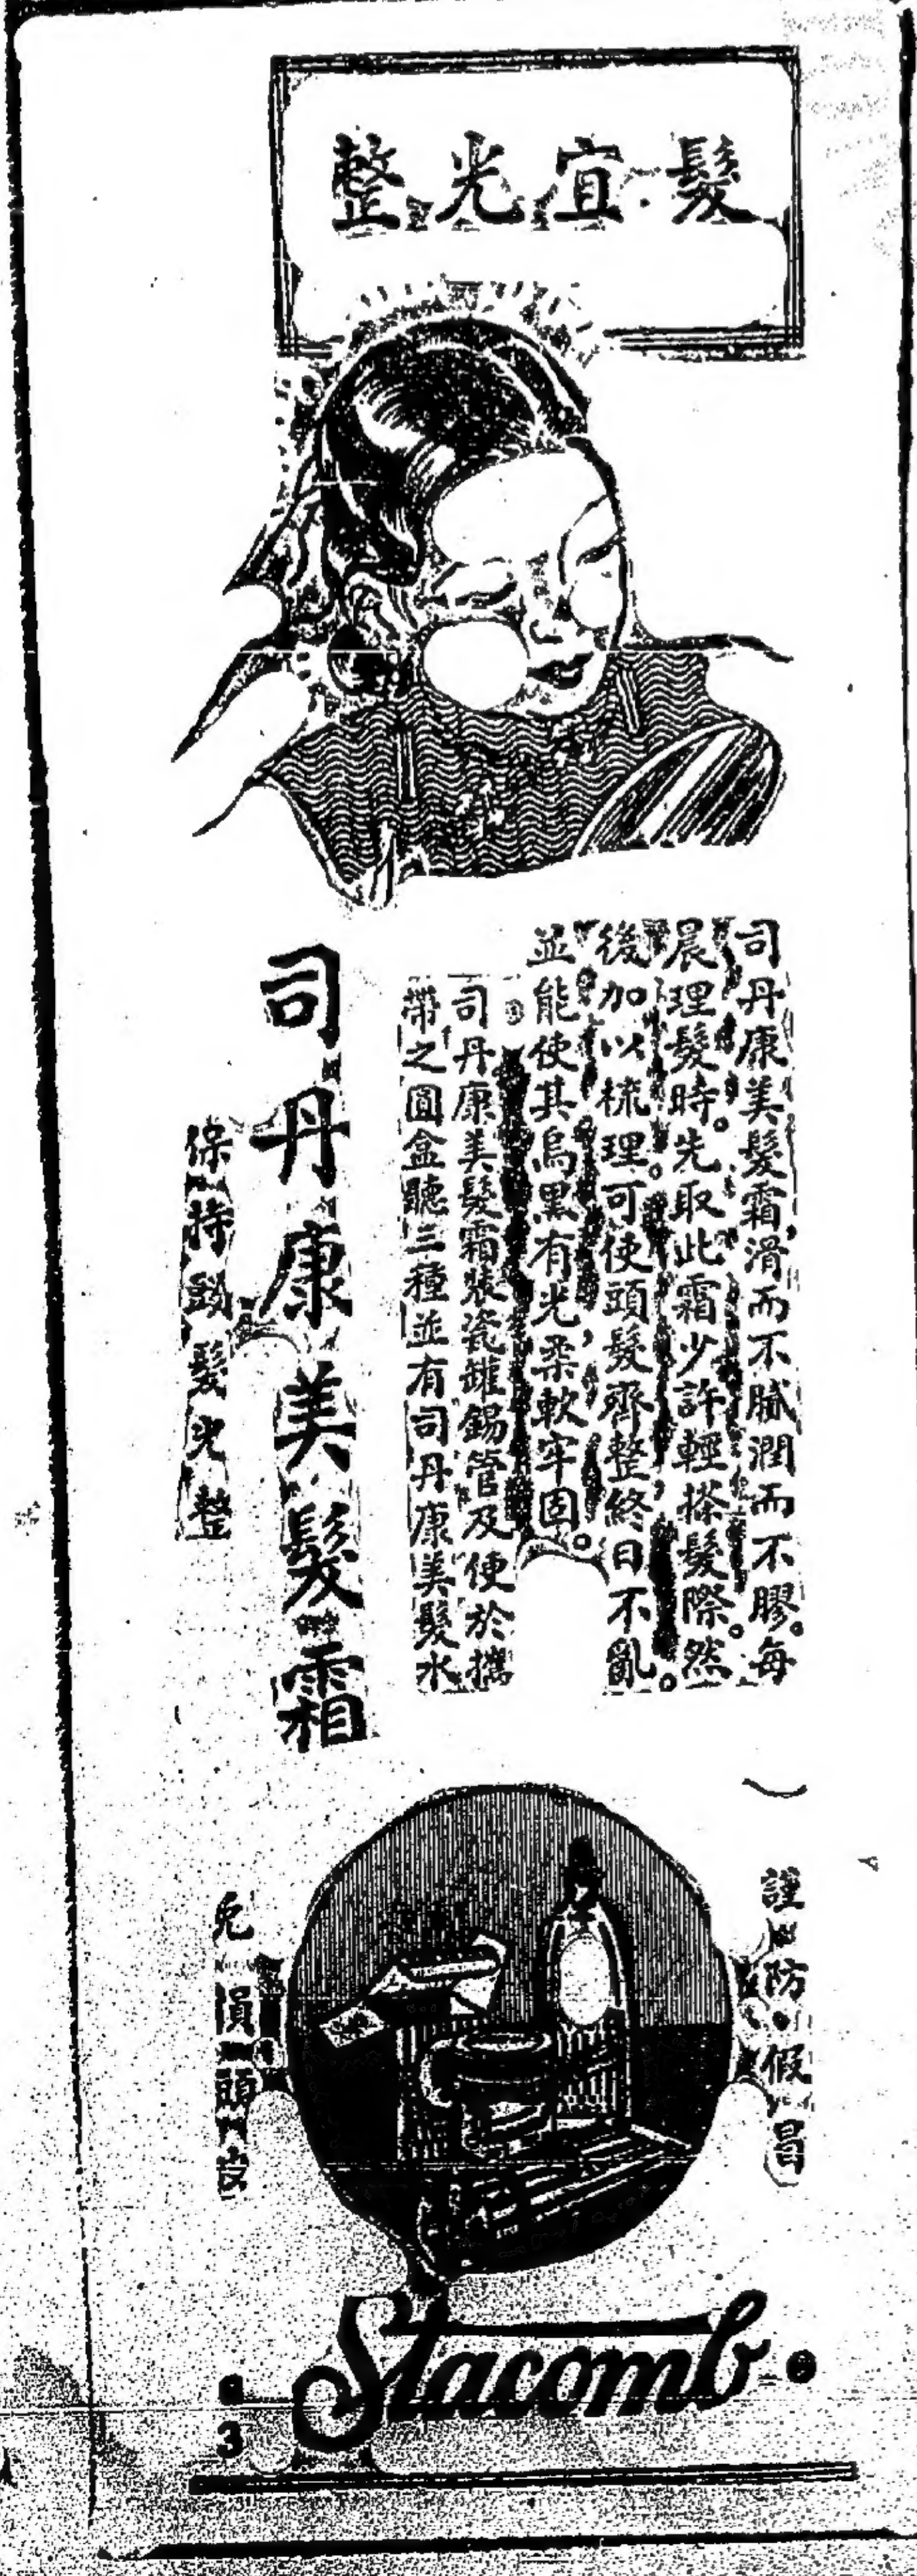 髮宜光整
司丹康美髮霜滑而不膩潤而不膠。每
晨理髮時。先取此霜少許輕搽髮際。然
後加以梳理。可使頭髮齊整。終日不亂。
並能使其烏黑有光。柔軟牢固。
司丹康美髮霜裝瓷罐錫管及便於攜
帶之圓盒聽三種並有司丹康美髮水
司丹康美髮霜
保持頭髮光整
謹防假冒
免損頭髮
Stacomb
3